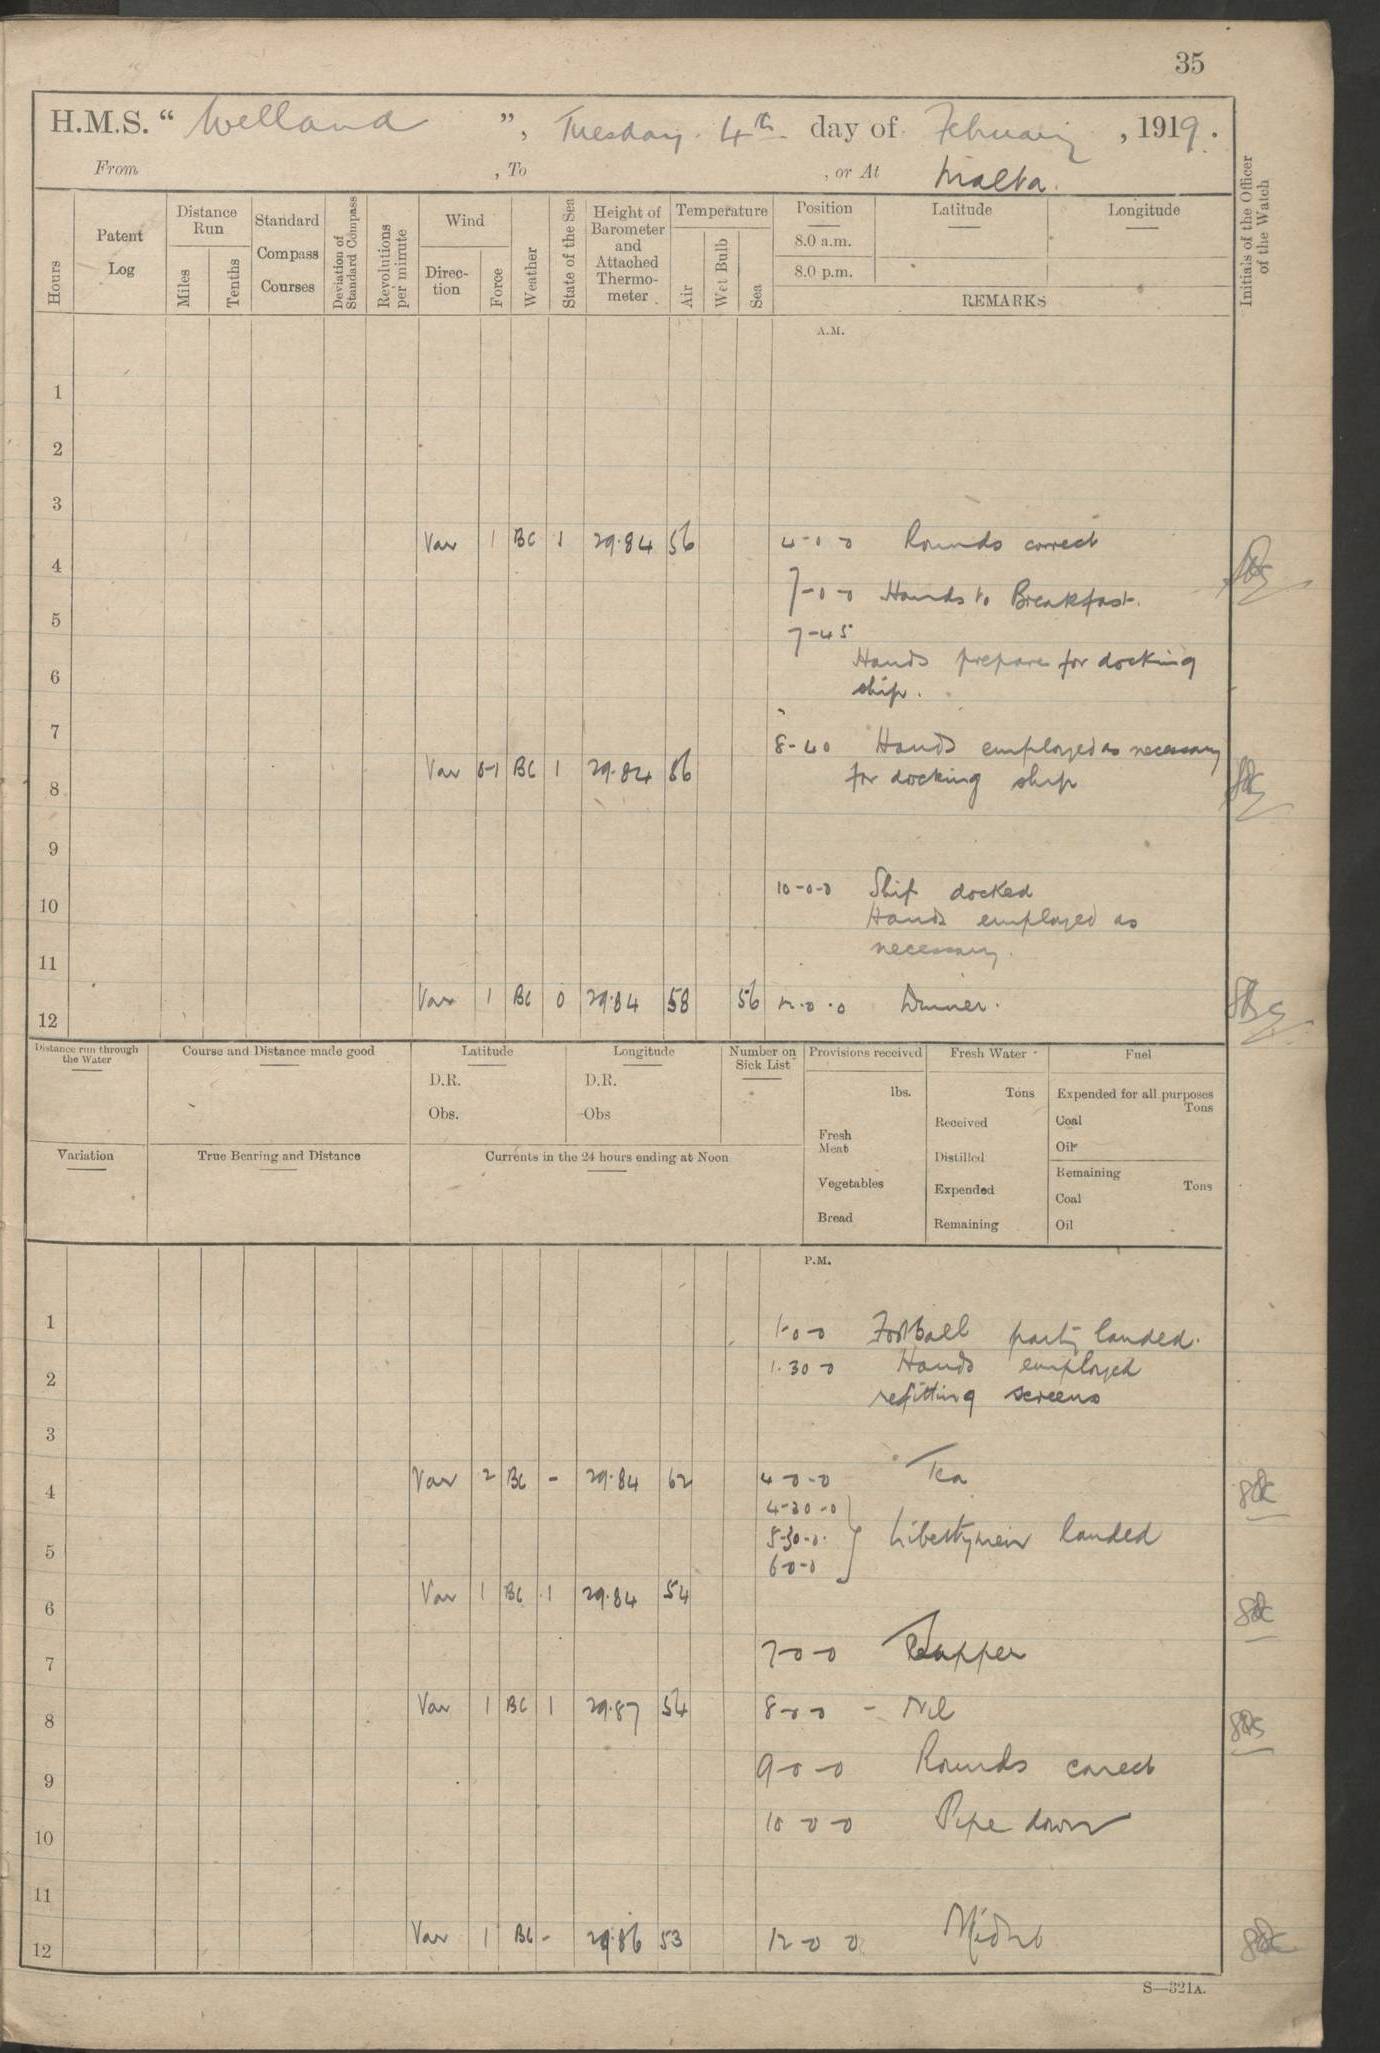 35
H.M.S. “ Welland ”, Tuesday 4th day of February , 1919.
From , To , or At Malta.
Hours
Patent Log
Distance Run
Miles
Tenths
Standard Compass Courses
Deviation of Standard Compass
Revolutions per minute
Wind
Direction
Force
Weather
State of the Sea
Height of Barometer and Attached Thermometer
Temperature
Air
Wet Bulb
Sea
Position
8.0 a.m.
8.0 p.m.
Latitude
Longitude
REMARKS
Initials of the Officer of the Watch
A.M.
1
2
3
4 Var 1 BC 1 29.84 56 4-0-0 Rounds correct
5 7-0-0 Hands to Breakfast.
7-45
6 Hands prepare for docking
ship.
7
8-40 Hands employed as necessary
8 Var 0-1 BC 1 29.84 56 for docking ship
9
10 10-0-0 Ship docked
Hands employed as
11 necessary.
12 Var 1 BC 0 29.84 58 56 12.0.0 Dinner.
Distance run through the Water
Course and Distance made good
Latitude
D.R.
Obs.
Longitude
D.R.
Obs
Number on Sick List
Provisions received
lbs.
Fresh Meat
Vegetables
Bread
Fresh Water
Tons
Received
Distilled
Expended
Remaining
Fuel
Expended for all purposes
Tons
Coal
Oil
Remaining
Tons
Coal
Oil
Variation
True Bearing and Distance
Currents in the 24 hours ending at Noon
P.M.
1 1-0-0 Football party landed.
2 1.30-0 Hands employed
refitting screens
3
4 Var 2 BC - 29.84 62 4-0-0 Tea
4-30-0
5 5-30-0 Libertymen landed
6-0-0
6 Var 1 BC 1 29.84 54
7 7-0-0 Supper
8 Var 1 BC 1 29.87 54 8-0-0 - Nil
9 9-0-0 Rounds correct
10 10-0-0 Pipe down
11
12 Var 1 BC - 29.86 53 12-0-0 Midnt
S—321A.